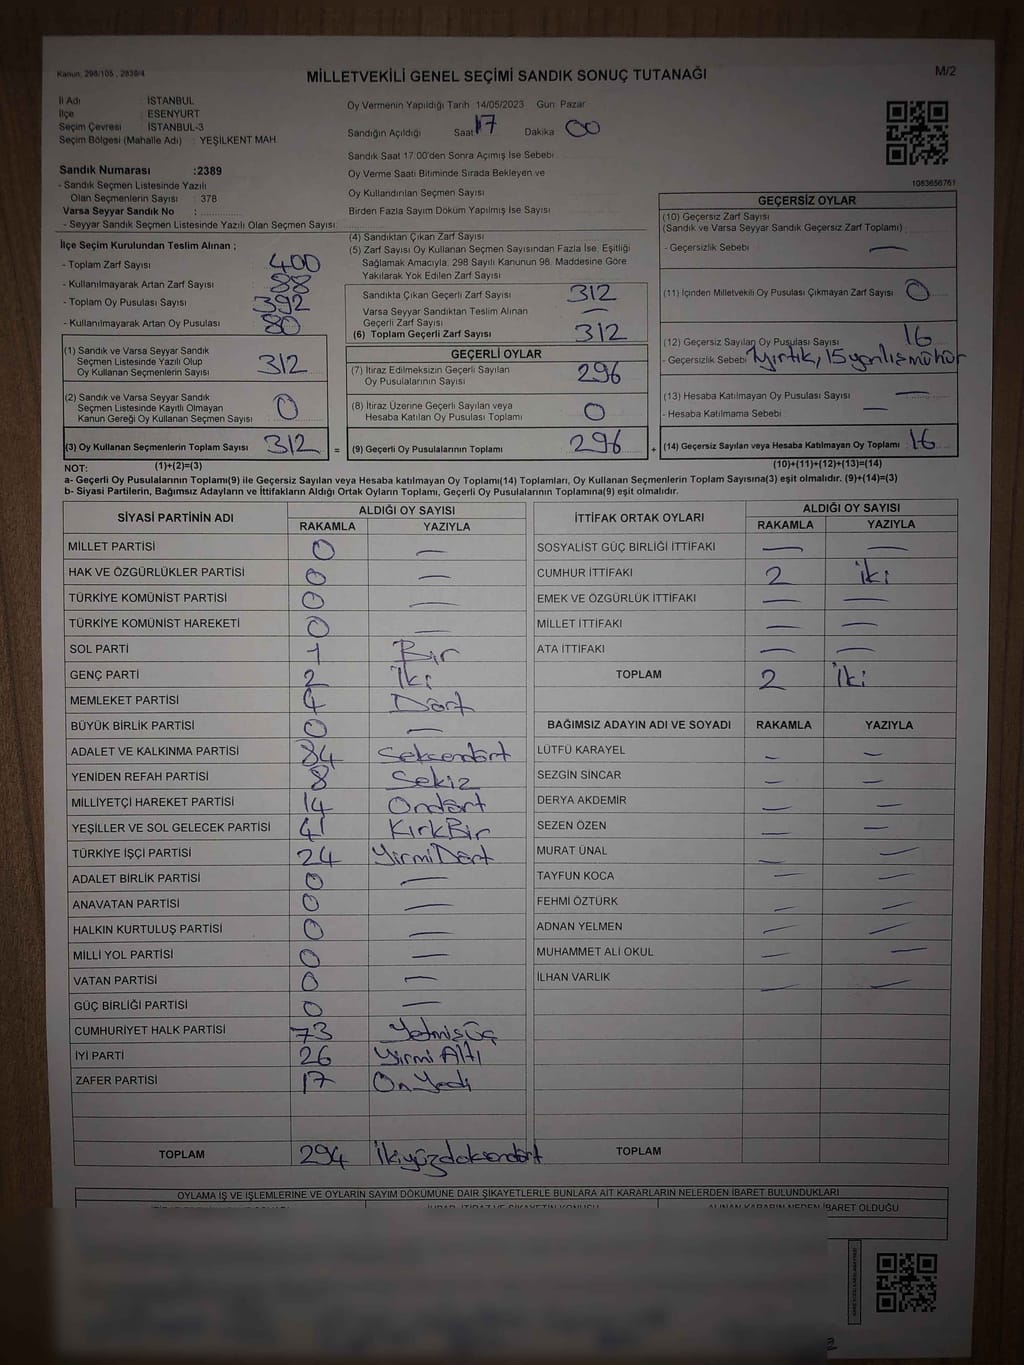 Kanun, 298/105 , 2839/4
MİLLETVEKİLİ GENEL SEÇİMİ SANDIK SONUÇ TUTANAĞI
M/2
İl Adı : İSTANBUL
İlçe : ESENYURT
Seçim Çevresi : İSTANBUL-3
Seçim Bölgesi (Mahalle Adı) : YEŞİLKENT MAH.
Sandık Numarası :2389
- Sandık Seçmen Listesinde Yazılı
Olan Seçmenlerin Sayısı : 378
Varsa Seyyar Sandık No :
- Seyyar Sandık Seçmen Listesinde Yazılı Olan Seçmen Sayısı:
Oy Vermenin Yapıldığı Tarih 14/05/2023 Gün: Pazar
Sandığın Açıldığı Saat 17 Dakika 00
Sandık Saat 17:00'den Sonra Açımış İse Sebebi
Oy Verme Saati Bitiminde Sırada Bekleyen ve
Oy Kullandırılan Seçmen Sayısı
Birden Fazla Sayım Döküm Yapılmış İse Sayısı
1083656761
İlçe Seçim Kurulundan Teslim Alınan ;
- Toplam Zarf Sayısı 400
- Kullanılmayarak Artan Zarf Sayısı 88
- Toplam Oy Pusulası Sayısı 392
- Kullanılmayarak Artan Oy Pusulası 80
(1) Sandık ve Varsa Seyyar Sandık
Seçmen Listesinde Yazılı Olup
Oy Kullanan Seçmenlerin Sayısı 312
(2) Sandık ve Varsa Seyyar Sandık
Seçmen Listesinde Kayıtlı Olmayan
Kanun Gereği Oy Kullanan Seçmen Sayısı 0
(3) Oy Kullanan Seçmenlerin Toplam Sayısı 312 =
(4) Sandıktan Çıkan Zarf Sayısı
(5) Zarf Sayısı Oy Kullanan Seçmen Sayısından Fazla İse, Eşitliği
Sağlamak Amacıyla; 298 Sayılı Kanunun 98. Maddesine Göre
Yakılarak Yok Edilen Zarf Sayısı
Sandıkta Çıkan Geçerli Zarf Sayısı 312
Varsa Seyyar Sandıktan Teslim Alınan
Geçerli Zarf Sayısı —
(6) Toplam Geçerli Zarf Sayısı 312
GEÇERLİ OYLAR
(7) İtiraz Edilmeksizin Geçerli Sayılan
Oy Pusulalarının Sayısı 296
(8) İtiraz Üzerine Geçerli Sayılan veya
Hesaba Katılan Oy Pusulası Toplamı 0
(9) Geçerli Oy Pusulalarının Toplamı 296 +
GEÇERSİZ OYLAR
(10) Geçersiz Zarf Sayısı
(Sandık ve Varsa Seyyar Sandık Geçersiz Zarf Toplamı) :
- Geçersizlik Sebebi —
(11) İçinden Milletvekili Oy Pusulası Çıkmayan Zarf Sayısı 0
(12) Geçersiz Sayılan Oy Pusulası Sayısı 16
- Geçersizlik Sebebi 1yırtık, 15 yanlış mühür
(13) Hesaba Katılmayan Oy Pusulası Sayısı —
- Hesaba Katılmama Sebebi —
(14) Geçersiz Sayılan veya Hesaba Katılmayan Oy Toplamı : 16
NOT: (1)+(2)=(3) (10)+(11)+(12)+(13)=(14)
a- Geçerli Oy Pusulalarının Toplamı(9) ile Geçersiz Sayılan veya Hesaba katılmayan Oy Toplamı(14) Toplamları, Oy Kullanan Seçmenlerin Toplam Sayısına(3) eşit olmalıdır. (9)+(14)=(3)
b- Siyasi Partilerin, Bağımsız Adayların ve İttifakların Aldığı Ortak Oyların Toplamı, Geçerli Oy Pusulalarının Toplamına(9) eşit olmalıdır.
SİYASİ PARTİNİN ADI ALDIĞI OY SAYISI
RAKAMLA YAZIYLA
MİLLET PARTİSİ 0 —
HAK VE ÖZGÜRLÜKLER PARTİSİ 0 —
TÜRKİYE KOMÜNİST PARTİSİ 0 —
TÜRKİYE KOMÜNİST HAREKETİ 0 —
SOL PARTİ 1 Bir
GENÇ PARTİ 2 İki
MEMLEKET PARTİSİ 4 Dört
BÜYÜK BİRLİK PARTİSİ 0 —
ADALET VE KALKINMA PARTİSİ 84 Seksendört
YENİDEN REFAH PARTİSİ 8 Sekiz
MİLLİYETÇİ HAREKET PARTİSİ 14 Ondört
YEŞİLLER VE SOL GELECEK PARTİSİ 41 KırkBir
TÜRKİYE İŞÇİ PARTİSİ 24 YirmiDört
ADALET BİRLİK PARTİSİ 0 —
ANAVATAN PARTİSİ 0 —
HALKIN KURTULUŞ PARTİSİ 0 —
MİLLİ YOL PARTİSİ 0 —
VATAN PARTİSİ 0 —
GÜÇ BİRLİĞİ PARTİSİ 0 —
CUMHURİYET HALK PARTİSİ 73 Yetmişüç
İYİ PARTİ 26 Yirmi Altı
ZAFER PARTİSİ 17 OnYedi
TOPLAM 294 İkiyüzdoksandört
İTTİFAK ORTAK OYLARI ALDIĞI OY SAYISI
RAKAMLA YAZIYLA
SOSYALİST GÜÇ BİRLİĞİ İTTİFAKI — —
CUMHUR İTTİFAKI 2 iki
EMEK VE ÖZGÜRLÜK İTTİFAKI — —
MİLLET İTTİFAKI — —
ATA İTTİFAKI — —
TOPLAM 2 iki
BAĞIMSIZ ADAYIN ADI VE SOYADI RAKAMLA YAZIYLA
LÜTFÜ KARAYEL — —
SEZGİN SİNCAR — —
DERYA AKDEMİR — —
SEZEN ÖZEN — —
MURAT ÜNAL — —
TAYFUN KOCA — —
FEHMİ ÖZTÜRK — —
ADNAN YELMEN — —
MUHAMMET ALİ OKUL — —
İLHAN VARLIK — —
TOPLAM
OYLAMA İŞ VE İŞLEMLERİNE VE OYLARIN SAYIM DÖKÜMÜNE DAİR ŞİKAYETLERLE BUNLARA AİT KARARLARIN NELERDEN İBARET BULUNDUKLARI
İHBAR, İTİRAZ VE ŞİKAYETİN KONUSU ALINAN KARARIN NEDEN İBARET OLDUĞU